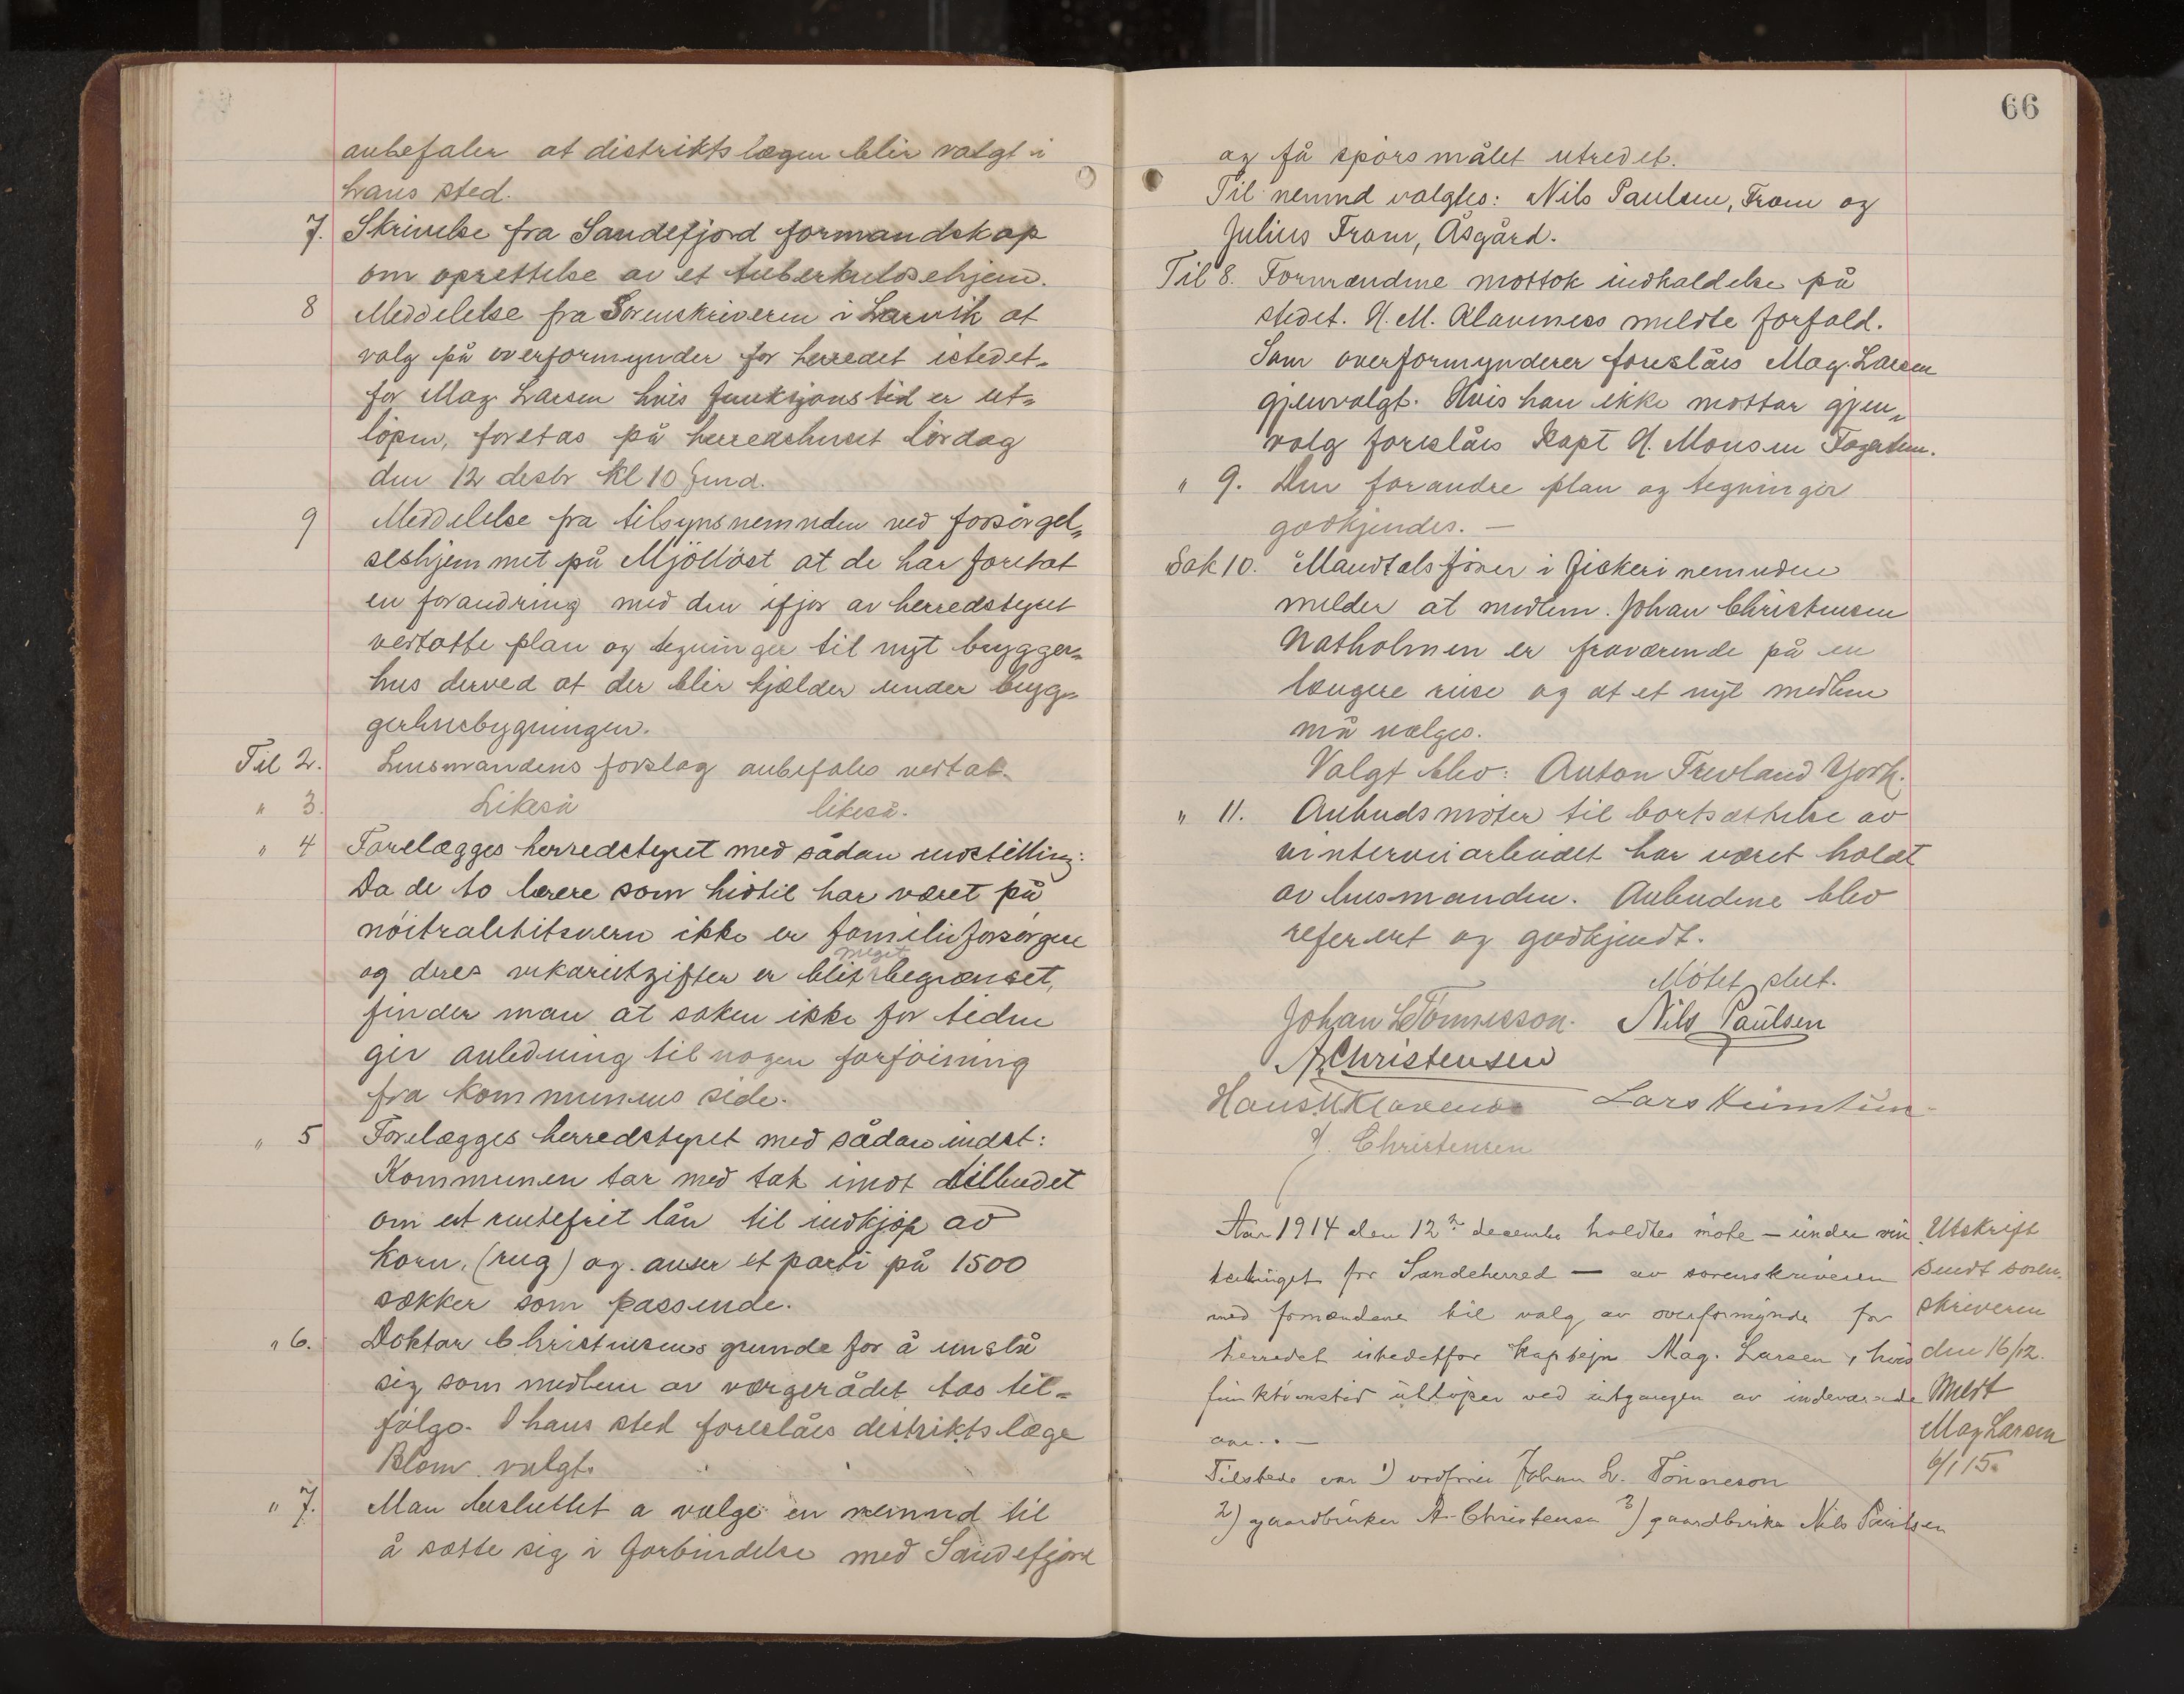 anbefaler at distriktslægen blir valgt i
hans sted.
7. Skrivelse fra Sandefjord formandskap
om oprettelse av et tuberkulosehjem.
8 Meddelelse fra Sorenskriveren i Larvik at
valg på overformynder for herredet istedet-
for Mag. Larsen hvis funksjonstid er ut-
løpen, foretas på herredshuset lørdag
den 12 desbr kl 10 fmd.
9 Meddelelse fra tilsynsnemnden ved forsørgel-
seshjemmet på Mjölløst at de har foretat
en forandring med den ifjor av herredstyret
vedtatte plan og tegninger til nyt brygger-
hus derved at der blir kjælder under bryg-
gerhusbygningen.
Til 2. Lensmandens forslag anbefales vedtat.
" 3. Likeså likeså.
" 4 Forelægges herredstyret med sådan indstilling:
Da de to lærere som hidtil har været på
nöitralitetsvern ikke er familieforsörgere
og deres vikarutgifter er blit meget begrænset,
finder man at saken ikke for tiden
gir anledning til nogen forföining
fra kommunens side.
" 5 Forelægges herredstyret med sådan indst:
Kommunen tar med tak imot tilbudet
om et rentefrit lån til indkjöp av
korn, (rug) og anser et parti på 1500
sækker som passende.
" 6. Doktor Christensens grunde for å unslå
sig som medlem av værgerådet tas til-
fölge. I hans sted foreslåes distriktslæge
Blom valgt.
" 7. Man besluttet a vælge en nemnd til
å sætte sig i forbindelse med Sandefjord
66
og få spörsmålet utredet.
Til nemnd valgtes: Nils Paulsen, Fram og
Julius Fram, Åsgård.
Til 8. Formændene mottok indkaldelse på
stedet. H. M. Klaveness meldte forfald.
Som overformynderer foreslåes Mag. Larsen
gjenvalgt. Hvis han ikke mottar gjen-
valg foreslåes Kapt H. Monsen
" 9. Den forandre plan og tegninger
godkjendes. —
Sak 10. Mandtalsförer i fiskerinemnden
melder at medlem. Johan Christensen
Natholmen er fraværende på en
længere reise og at et nyt medlem
må vælges.
Valgt blev: Anton Trevland York.
" 11. Anbudsmöter til bortsættelse av
vinterveiarbeidet har været holdt
av lensmanden. Anbudene blev
referert og godkjendt.
Mötet slut.
Johan L Tönnesson. Nils Paulsen
A. Christensen
Hans Klaveness Lars Heimtun
H. Christensen
Aar 1914 den 12te december holdtes möte – under vin
tertinget for Sandeherred — av sorenskriveren
med formændene til valg av overformynder for
herredet istedetfor kaptejn Mag. Larsen, hvis
funktionstid utlöper ved utgangen av indeværende
aar. —
Tilstede var 1) ordförer Johan L. Tönneson
2) gaardbruker A. Christensen 3) gaardbruker Nils Paulsen
Utskrift
sendt soren-
skriveren
den 16/12.
Medt
Mag Larsen
6/1 15.